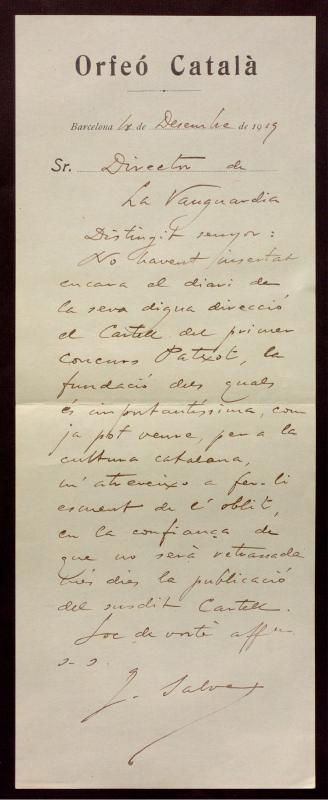 Orfeó Català
Barcelona de Desembre de 1919
Sr. Director de
La Vanguardia
Distingit senyor:
No havent insertat
encara el diari de
la seva digna direcció
el Cartell del primer
Concurs Patxot, la
fundació dels quals
és importantíssima, com
ja pot veure, per a la
cultura catalana,
m'atreveixo a fer-li
esment de l'oblit,
en la confiança de
que no serà retrassada
més dies la publicació
del susdit Cartell.
Soc de vosté affm
s. s.
J. Salvat